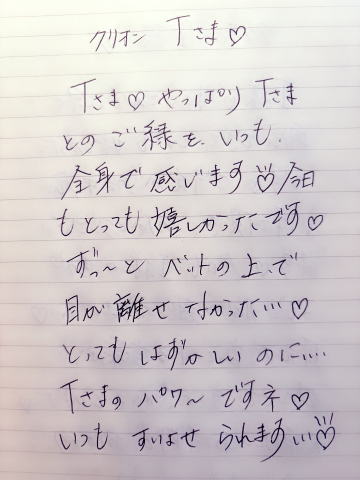 クリオン Tさま♡
Tさま♡ やっぱり Tさま
とのご縁を、いつも、
全身で感じます♡今日
もとっても嬉しかったです♡
ずっ〜とベットの上で
目が離せなかった…♡
とってもはずかしいのに……
Tさまのパワ〜ですネ♡
いつも すいよせ られます…♡